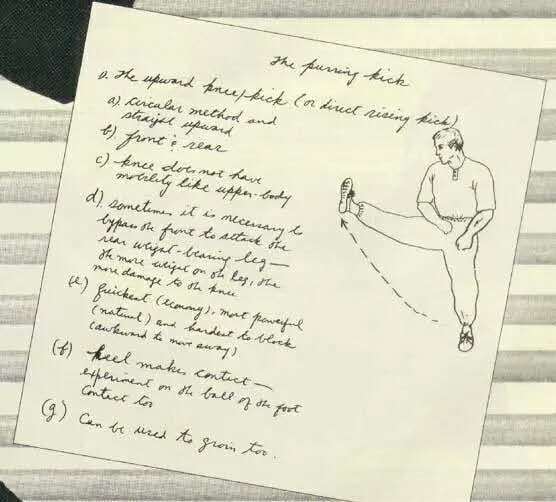 The purring kick
a. The upward knee/kick (or direct rising kick)
a). circular method and
straight upward
b) front & rear
c) knee does not have
motility like upper-body
d). sometimes it is necessary to
bypass the front to attack the
rear weight-bearing leg —
the more weight on the leg, the
more damage to the knee
(e) quickest (economy), most powerful
(natural) and hardest to block
(awkward to move away)
(f) heel makes contact —
experiment on the ball of the foot
contact too
(g) Can be used to groin too.